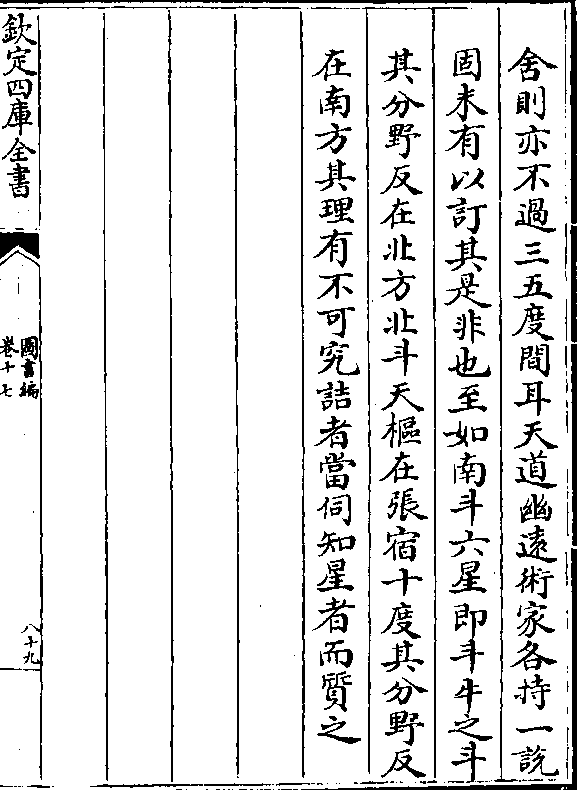 舍則亦不過三五度間耳天道幽遠術家各持一說
固未有以訂其是非也至如南斗六星即斗牛之斗
其分野反在北方北斗天樞在張宿十度其分野反
在南方其理有不可究詰者當伺知星者而質之
欽定四庫全書
圖書編
卷十七
八十九